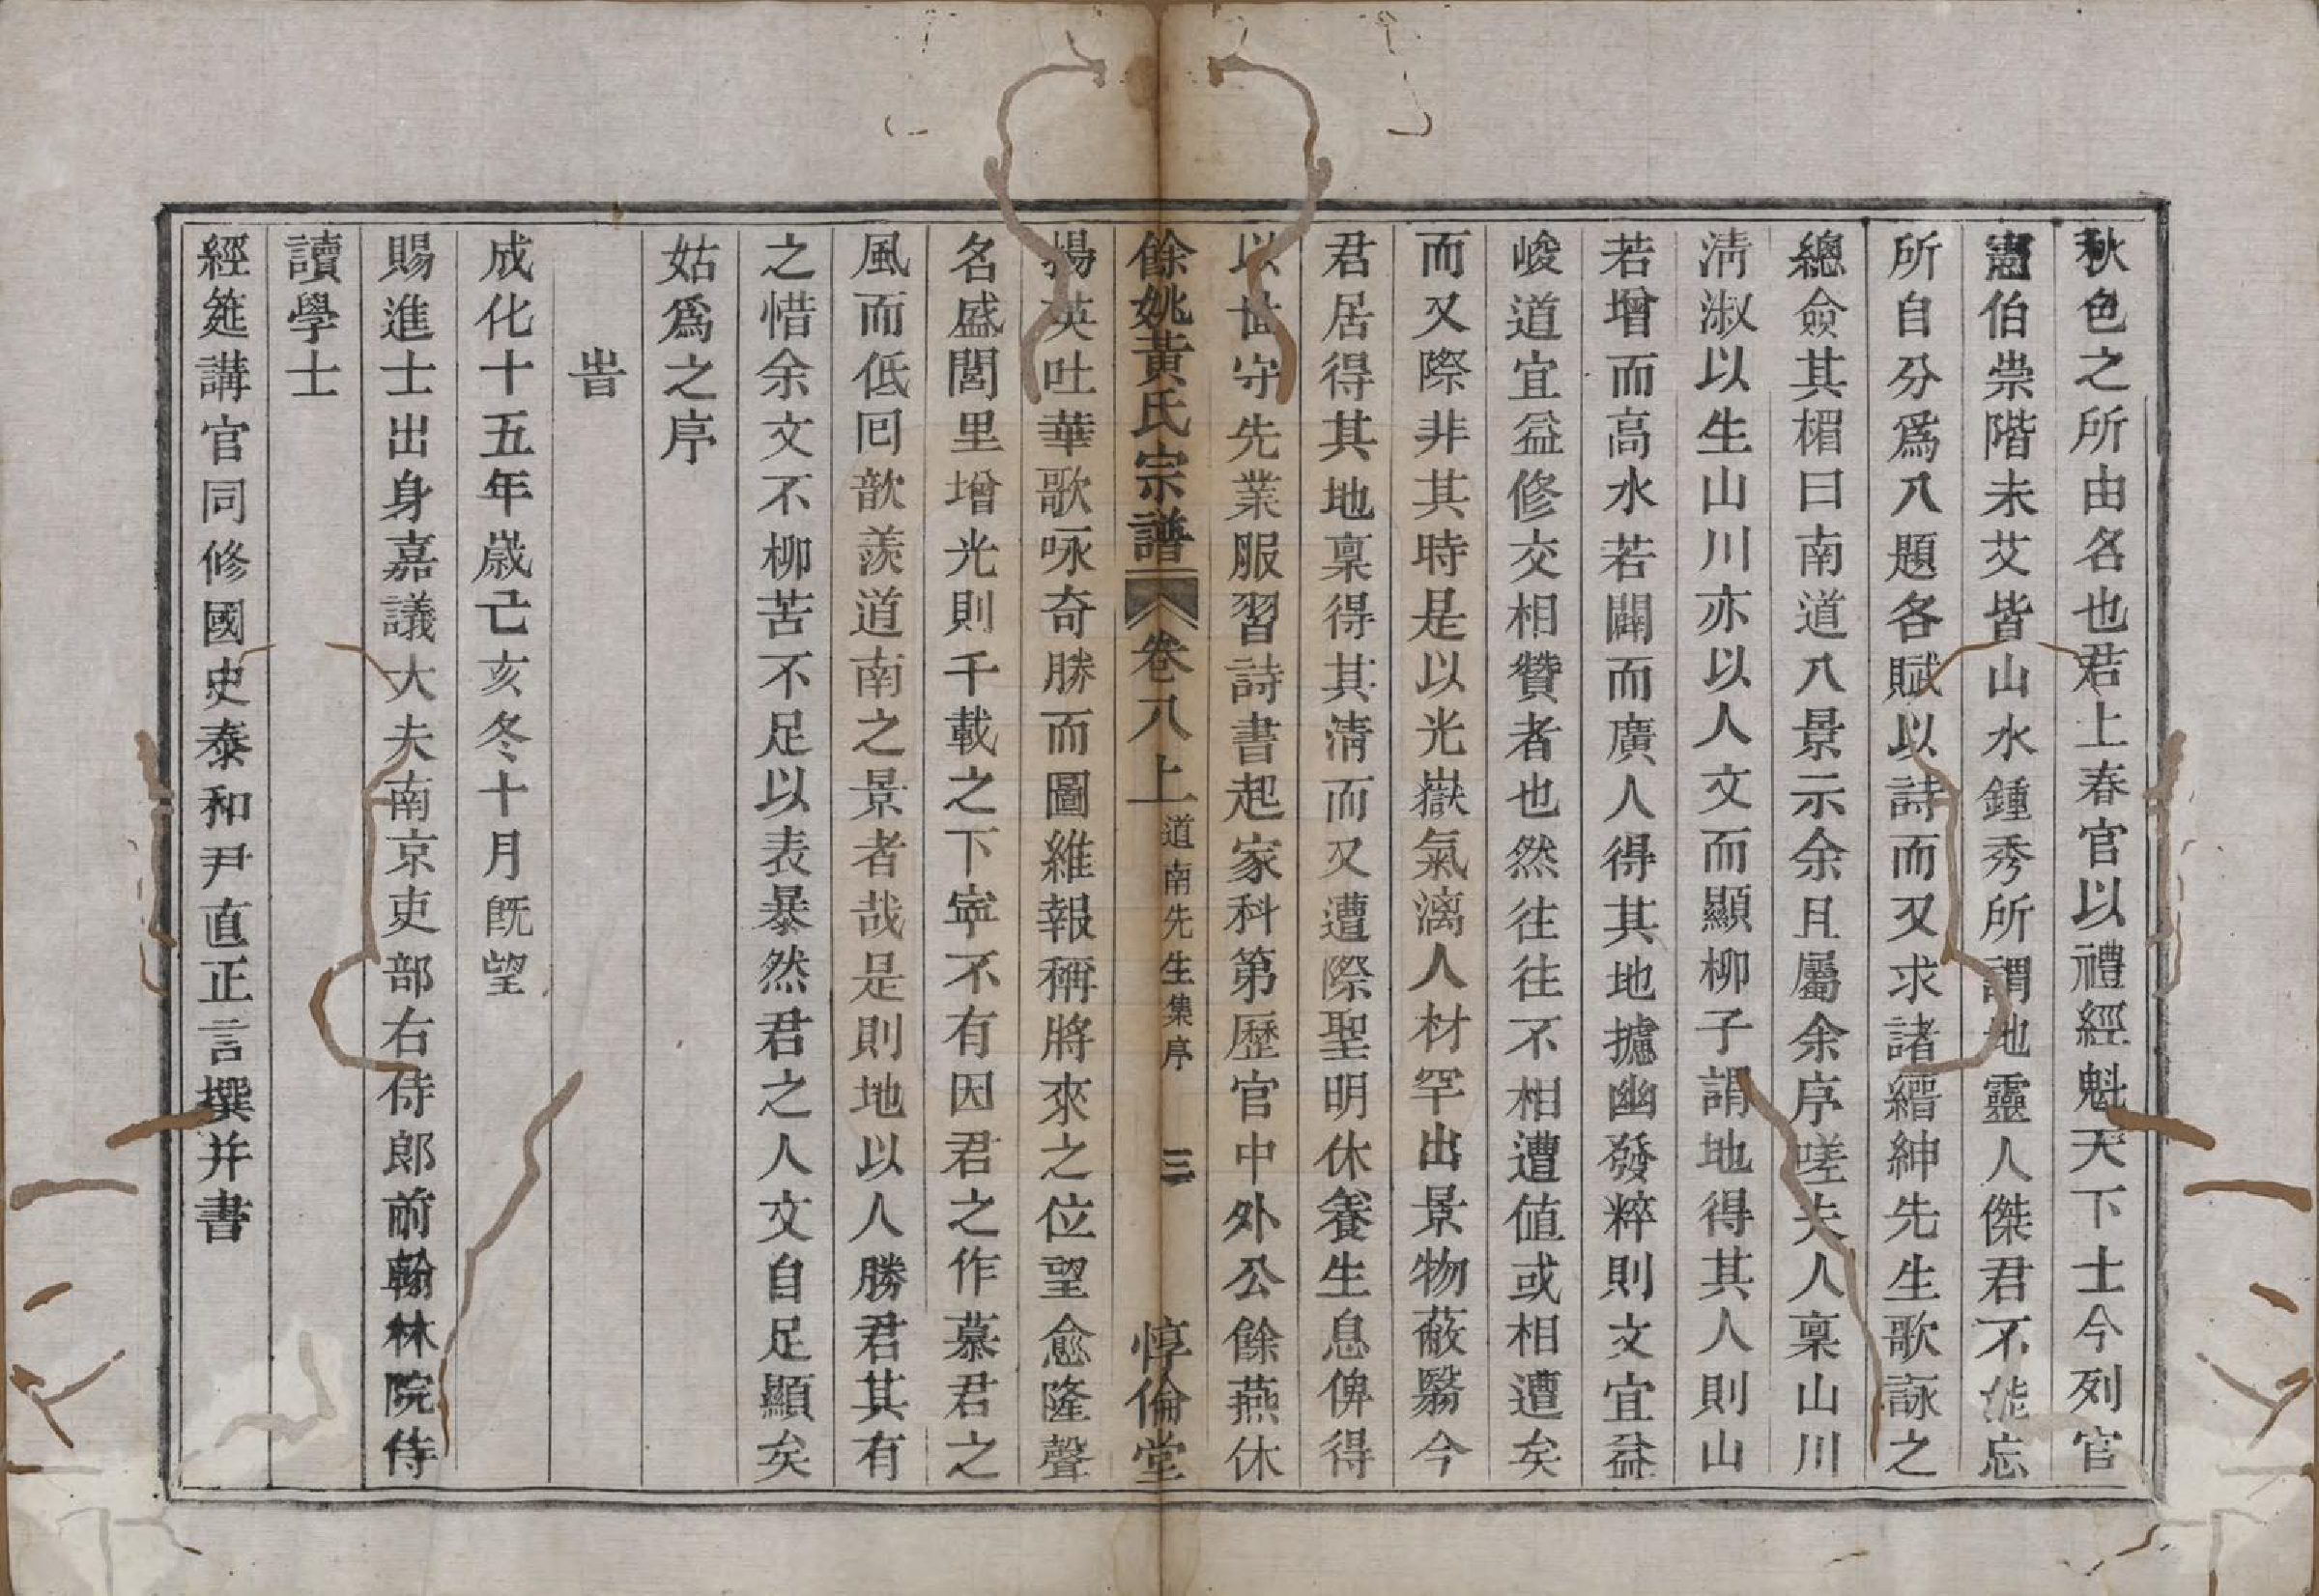 秋色之所由名也君上春官以禮經魁天下士今列官
憲伯崇階未艾皆山水鍾秀所謂地靈人傑君不能忘
所自分爲八題各賦以詩而又求諸縉紳先生歌詠之
總僉其楣曰南道八景示余且屬余序嗟夫人稟山川
淸淑以生山川亦以人文而顯柳子謂地得其人則山
若增而高水若闢而廣人得其地攄幽發粹則文宜益
峻道宜益修交相贊者也然往往不相遭值或相遭矣
而又際非其時是以光嶽氣漓人材罕出景物蔽翳今
君居得其地稟得其淸而又遭際聖明休養生息俾得
以世守先業服習詩書起家科第歷官中外公餘燕休
餘姚黃氏宗譜 卷八上 道南先生集序 三 惇倫堂
揚英吐華歌咏奇勝而圖維報稱將來之位望愈隆聲
名盛閭里增光則千載之下寜不有因君之作慕君之
風而低回歆羨道南之景者哉是則地以人勝君其有
之惜余文不柳苦不足以表暴然君之人文自足顯矣
姑爲之序
旹
成化十五年歲己亥冬十月旣望
賜進士出身嘉議大夫南京吏部右侍郎前翰林院侍
讀學士
經筵講官同修國史泰和尹直正言撰并書